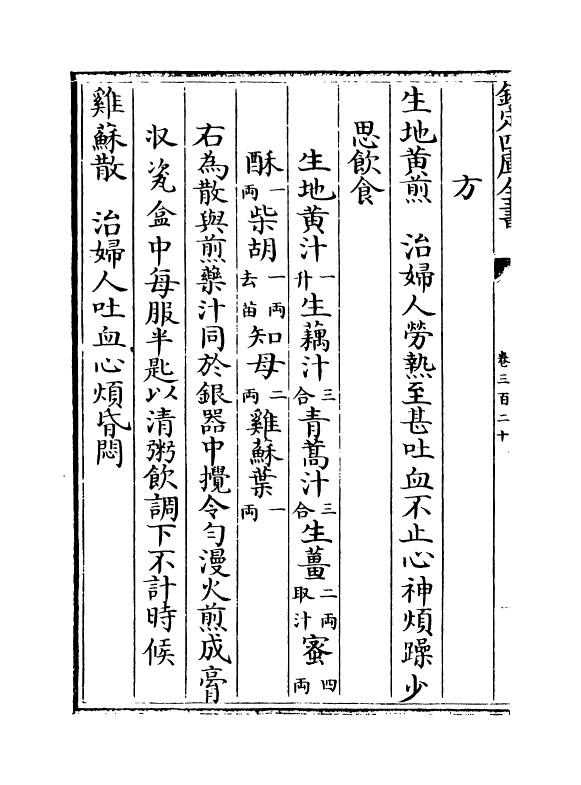 欽定四庫全書
卷三百二十
方
生地黄煎　治婦人勞熱至甚吐血不止心神煩躁少
思飲食
生地黄汁一升生藕汁三合青蒿汁三合生薑二兩取汁蜜四兩
酥一兩柴胡一兩去苗知母二兩雞蘇葉一兩
右為散與煎藥汁同於銀器中攪令勻漫火煎成膏
収瓷盒中每服半匙以清粥飲調下不計時候
雞蘇散　治婦人吐血心煩昏悶